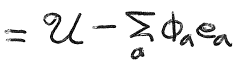 = 𝒰 − ∑ₐ ϕₐeₐ